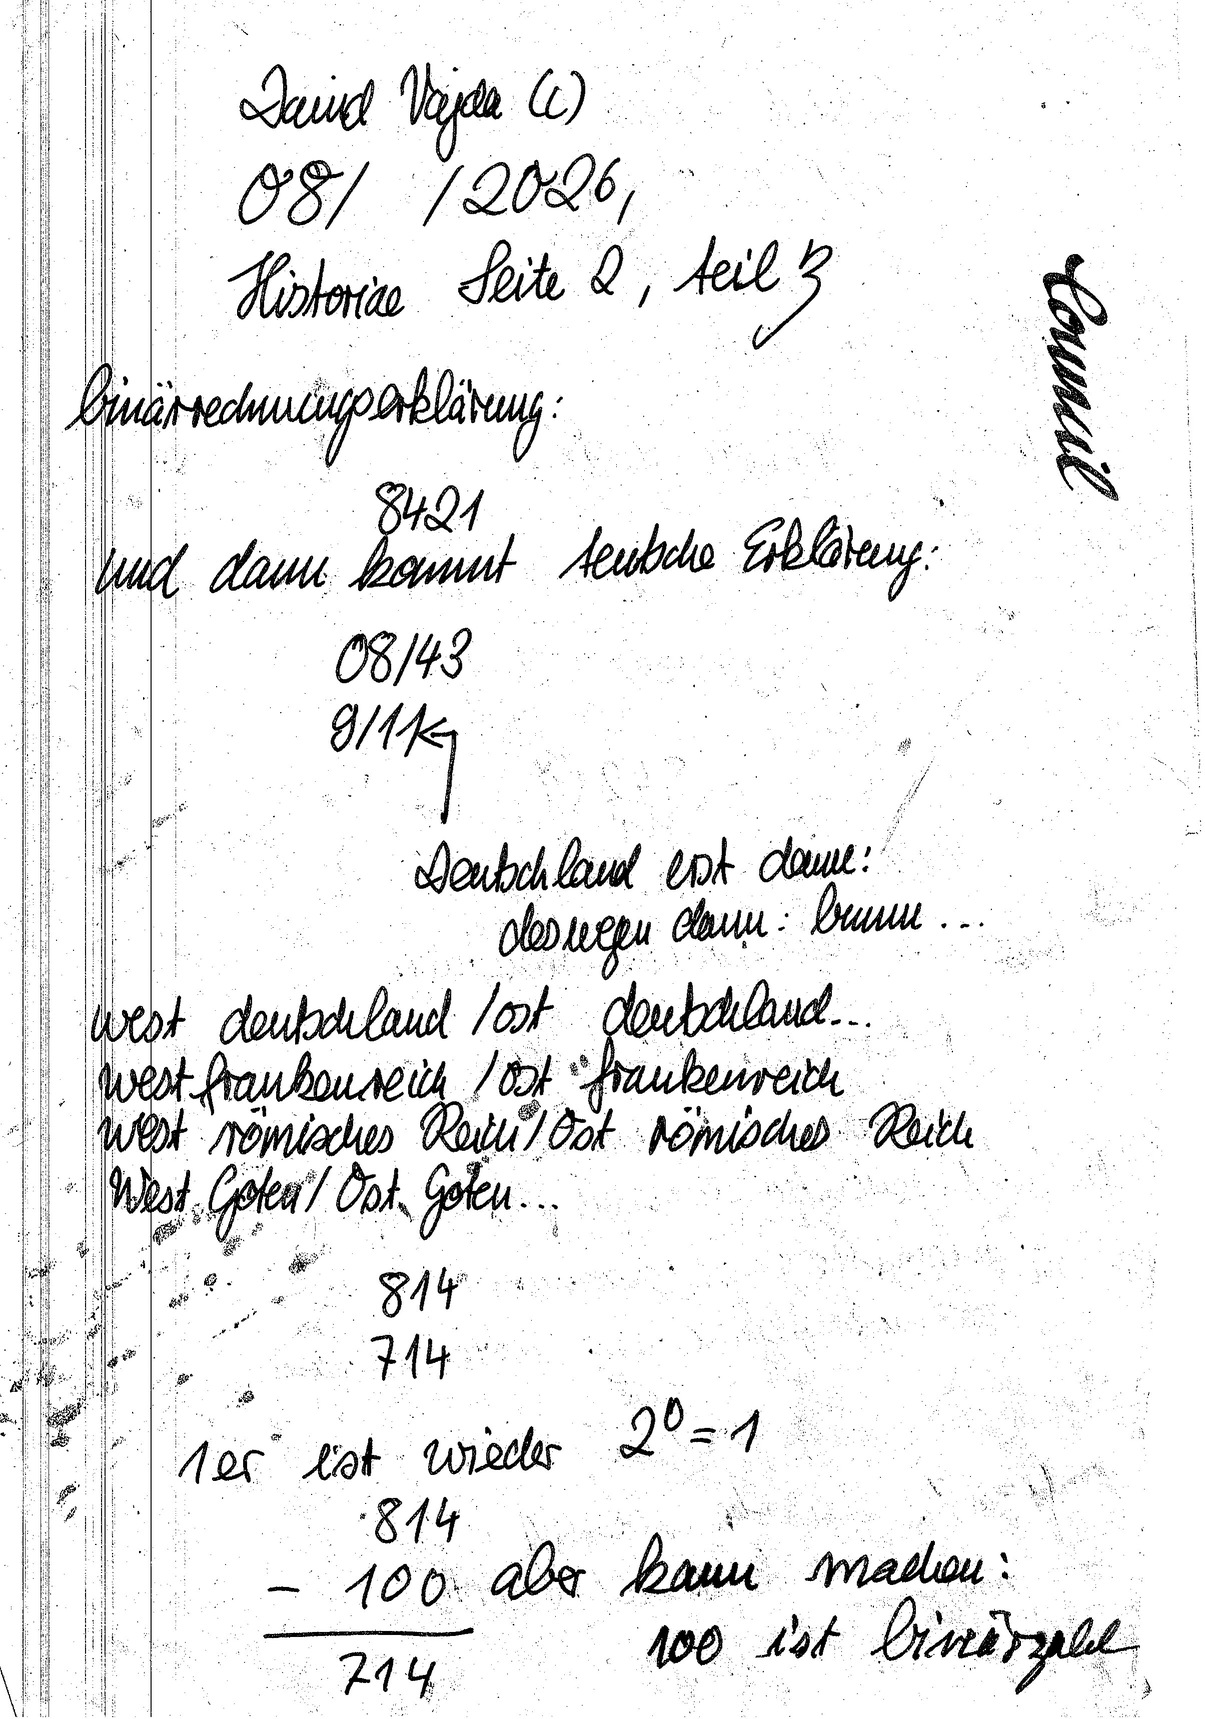 David Vajda (c)
08/ /2026,
Historiae Seite 2, teil 3
Council
binärrechnungserklärung:
8421
und dann kommt teutsche Erklärung:
08/43
9/11
Deutschland erst dann:
deswegen dann: brumm ...
west deutschland / ost deutschland...
westfrankenreich / ost frankenreich
west römisches Reich / Ost römisches Reich
West Goten / Ost Goten...
814
714
1er ist wieder 2⁰ = 1
814
- 100 aber kann machen:
100 ist binärzahl
714